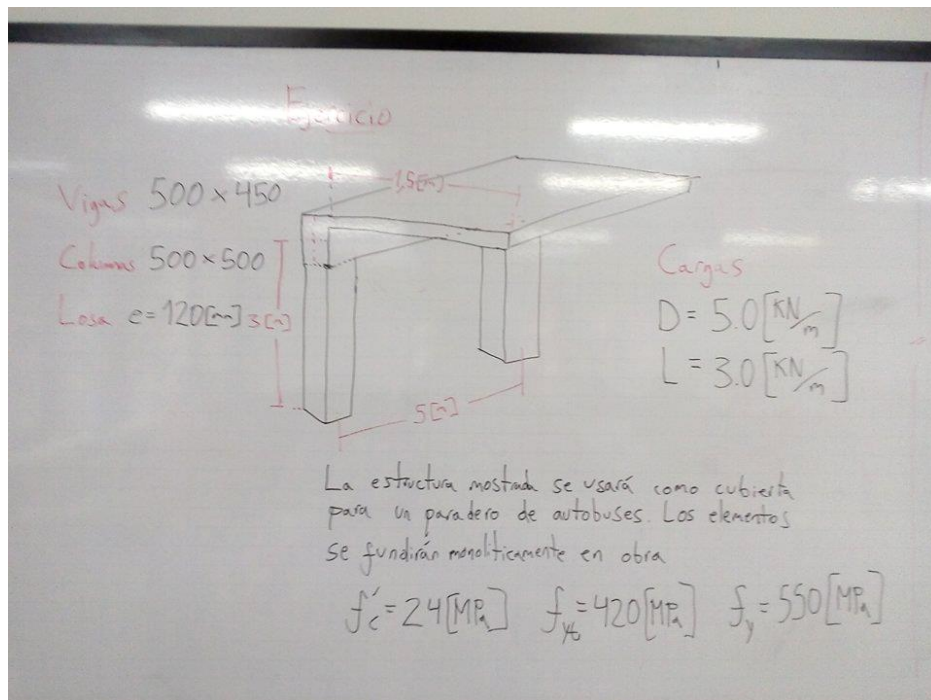 Ejercicio
Vigas 500 x 450
Columnas 500 x 500
Losa e = 120[mm]
1,5[m]
3[m]
5[m]
Cargas
D = 5.0 [KN/m]
L = 3.0 [KN/m]
La estructura mostrada se usará como cubierta
para un paradero de autobuses. Los elementos
se fundirán monolíticamente en obra
f'c = 24[MPa] fyt = 420[MPa] fy = 550[MPa]